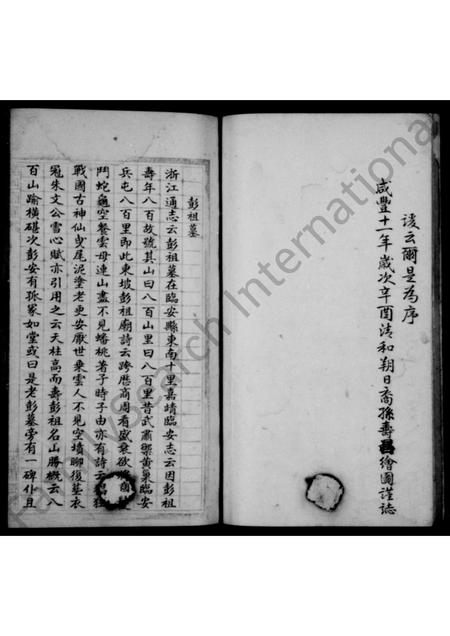 後云爾是為序
咸豐十一年歲次辛酉清和朔日裔孫壽 繪圖謹誌
彭祖墓
浙江通志云彭祖墓在臨安縣東南十里嘉靖臨安志云因彭祖
壽年八百故號其山曰八百山里曰八百里昔武肅禦黃巢臨安
兵屯八百里即此東坡彭祖廟詩云跨歷商周看盛衰欲將齒
鬥蛇龜空餐雲母連山盡不見蟠桃著子時子由亦有詩云 猖狂
戰國古神仙曳尾泥塗老更安厭世乘雲人不見空墳聊復葬衣
冠朱文公雪心賦亦引用之云天柱高而壽彭祖名山勝概云八
百山踰橫碪次彭安有孤冢如堂或曰是老彭墓旁有一碑仆且
FamilySearch International